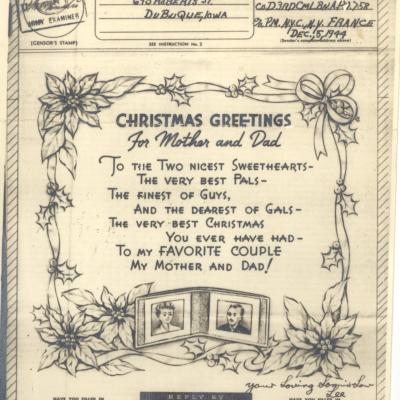 ARMY EXAMINER
(CENSOR'S STAMP)
690 ROBERTS ST.
DUBUQUE, IOWA
SEE INSTRUCTION No. 2
CO D 3RD CML BN APO 758
% P.M. N.Y.C., N.Y. FRANCE
DEC, 5, 1944
(Sender's complete address above)
CHRISTMAS GREETINGS
For Mother and Dad
TO THE TWO NICEST SWEETHEARTS-
THE VERY BEST PALS-
THE FINEST OF GUYS,
AND THE DEAREST OF GALS-
THE VERY BEST CHRISTMAS
YOU EVER HAVE HAD-
TO MY FAVORITE COUPLE
MY MOTHER AND DAD!
your loving Son-in-Law
Lee
HAVE YOU FILLED IN
REPLY BY
HAVE YOU FILLED IN